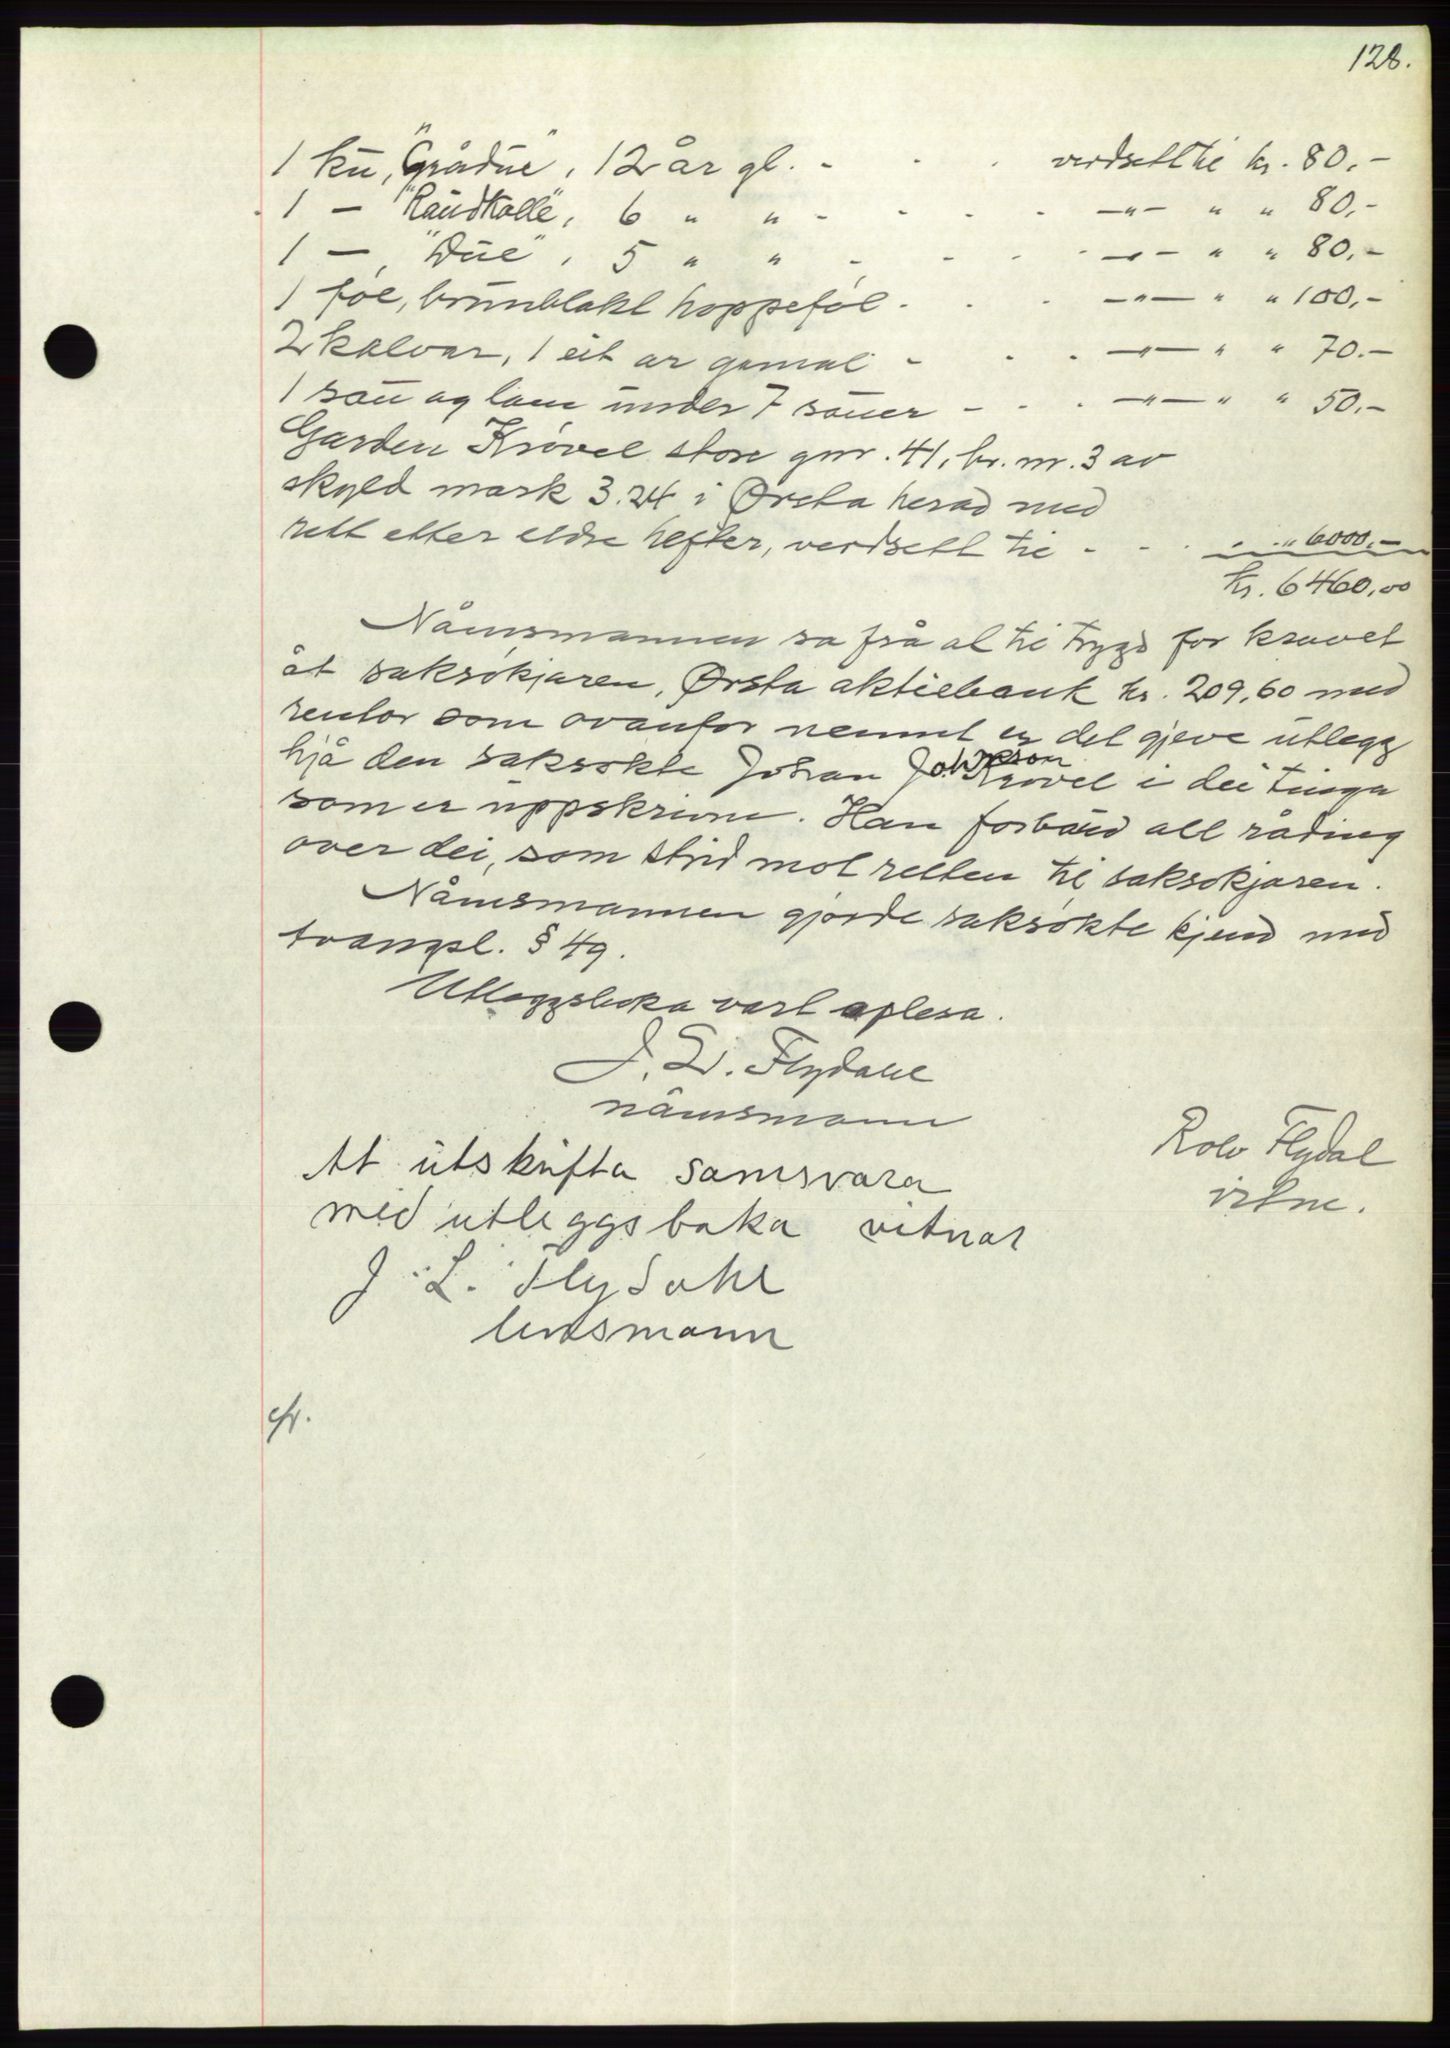 128.
1 ku, "Grådue", 12 år gl. - - - verdsett til kr. 80,-
1 — "Raudkolle", 6 " " - - - - —"— " " 80,-
1 —, "Due", 5 " " - - - - —"— " " 80,-
1 føl, brunblakt hoppeføl - - - —"— " " 100,-
2 kalvar, 1 eit ar gamal - - - —"— " " 70.-
1 sau og lam under 7 sauer - - - —"— " " 50.-
Garden Krøvel store gnr. 41, br. nr. 3 av
skyld mark 3.24 i Ørsta herad med
rett etter eldre hefter, verdsett til - - - - " 6000,-
kr. 6460,00
Nåmsmannen sa frå at til trygd for kravet
åt saksøkjaren, Ørsta aktiebank kr. 209,60 med
rentor som ovanfor nemnt er det gjeve utlegg
hjå den saksøkte Johan Johnson Krøvel i dei tinga
som er uppskrivne. Han forbaud all råding
over dei, som strid mot retten til saksøkjaren.
Nåmsmannen gjorde saksøkte kjend med
tvangsl. § 49.
Utleggsboka vart oplesa.
J. L. Flydahl
nåmsmann
Rolv Flydal
vitne.
At utskrifta samsvara
med utleggsboka vitnar
J. L. Flydahl
lensmann